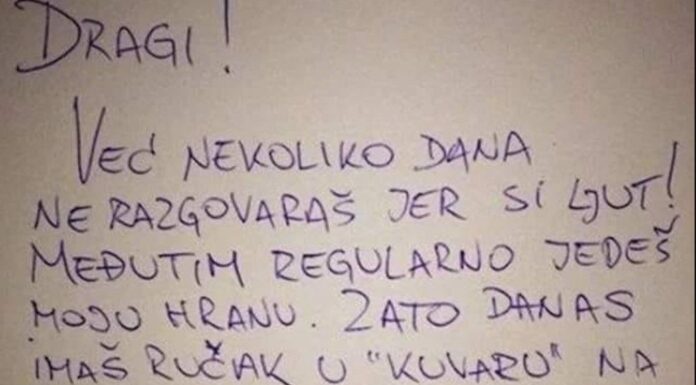 DRAGI!
VEĆ NEKOLIKO DANA
NE RAZGOVARAŠ JER SI LJUT!
MEĐUTIM REGULARNO JEDEŠ
MOJU HRANU. ZATO DANAS
IMAŠ RUČAK U "KUVARU" NA